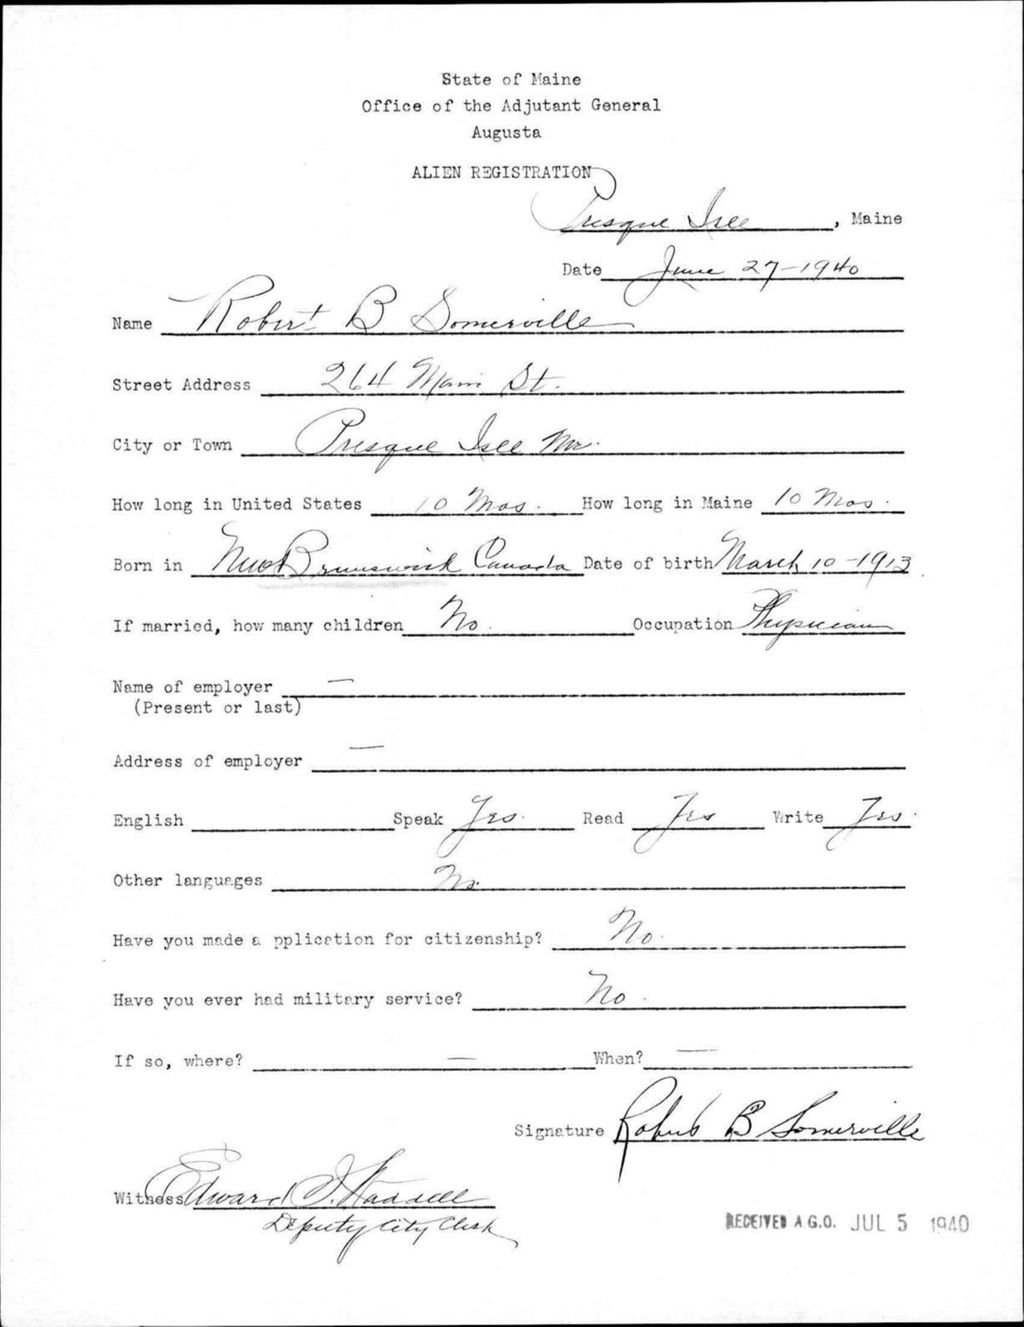 State of Maine
Office of the Adjutant General
Augusta
ALIEN REGISTRATION
Presque Isle, Maine
Date June 27-1940
Name Robert B Somerville
Street Address 264 Main St.
City or Town Presque Isle Me.
How long in United States 10 Mos. How long in Maine 10 Mos.
Born in New Brunswick Canada Date of birth March 10-1913
If married, how many children No. Occupation Physician
Name of employer —
(Present or last)
Address of employer —
English Speak Yes. Read Yes Write Yes.
Other languages No.
Have you made a pplication for citizenship? No.
Have you ever had military service? No.
If so, where? — When? —
Signature Robert B Somerville
Witness Edward I. Waddell
Deputy City Clerk
RECEIVED A.G.O. JUL 5 1940